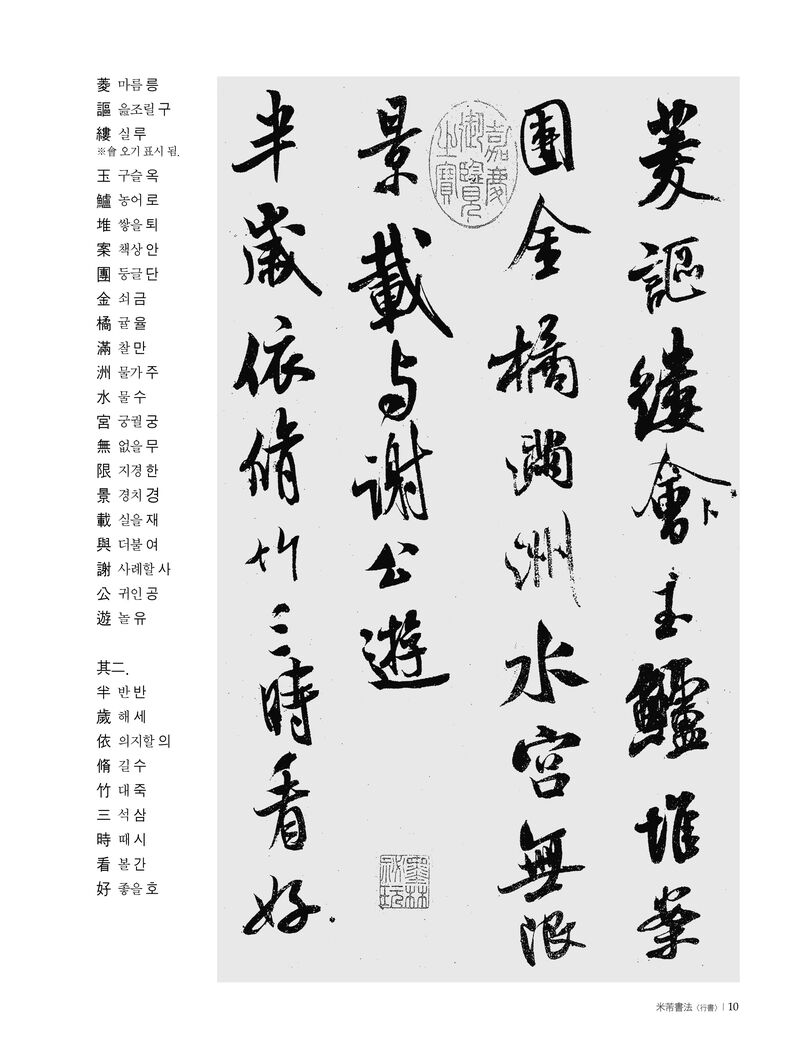 菱 마름 릉
謳 읊조릴 구
縷 실 루
※會 오기 표시 됨.
玉 구슬 옥
鱸 농어 로
堆 쌓을 퇴
案 책상 안
團 둥글 단
金 쇠 금
橘 귤 율
滿 찰 만
洲 물가 주
水 물 수
宮 궁궐 궁
無 없을 무
限 지경 한
景 경치 경
載 실을 재
與 더불 여
謝 사례할 사
公 귀인 공
遊 놀 유
其二.
半 반 반
歲 해 세
依 의지할 의
脩 길 수
竹 대 죽
三 석 삼
時 때 시
看 볼 간
好 좋을 호
菱謳縷會玉鱸堆案
團金橘滿洲水宮無限
景載与謝公遊
半歲依脩竹三時看好
嘉慶
御覽
之寶
墨林
秘玩
米芾書法〈行書〉 | 10